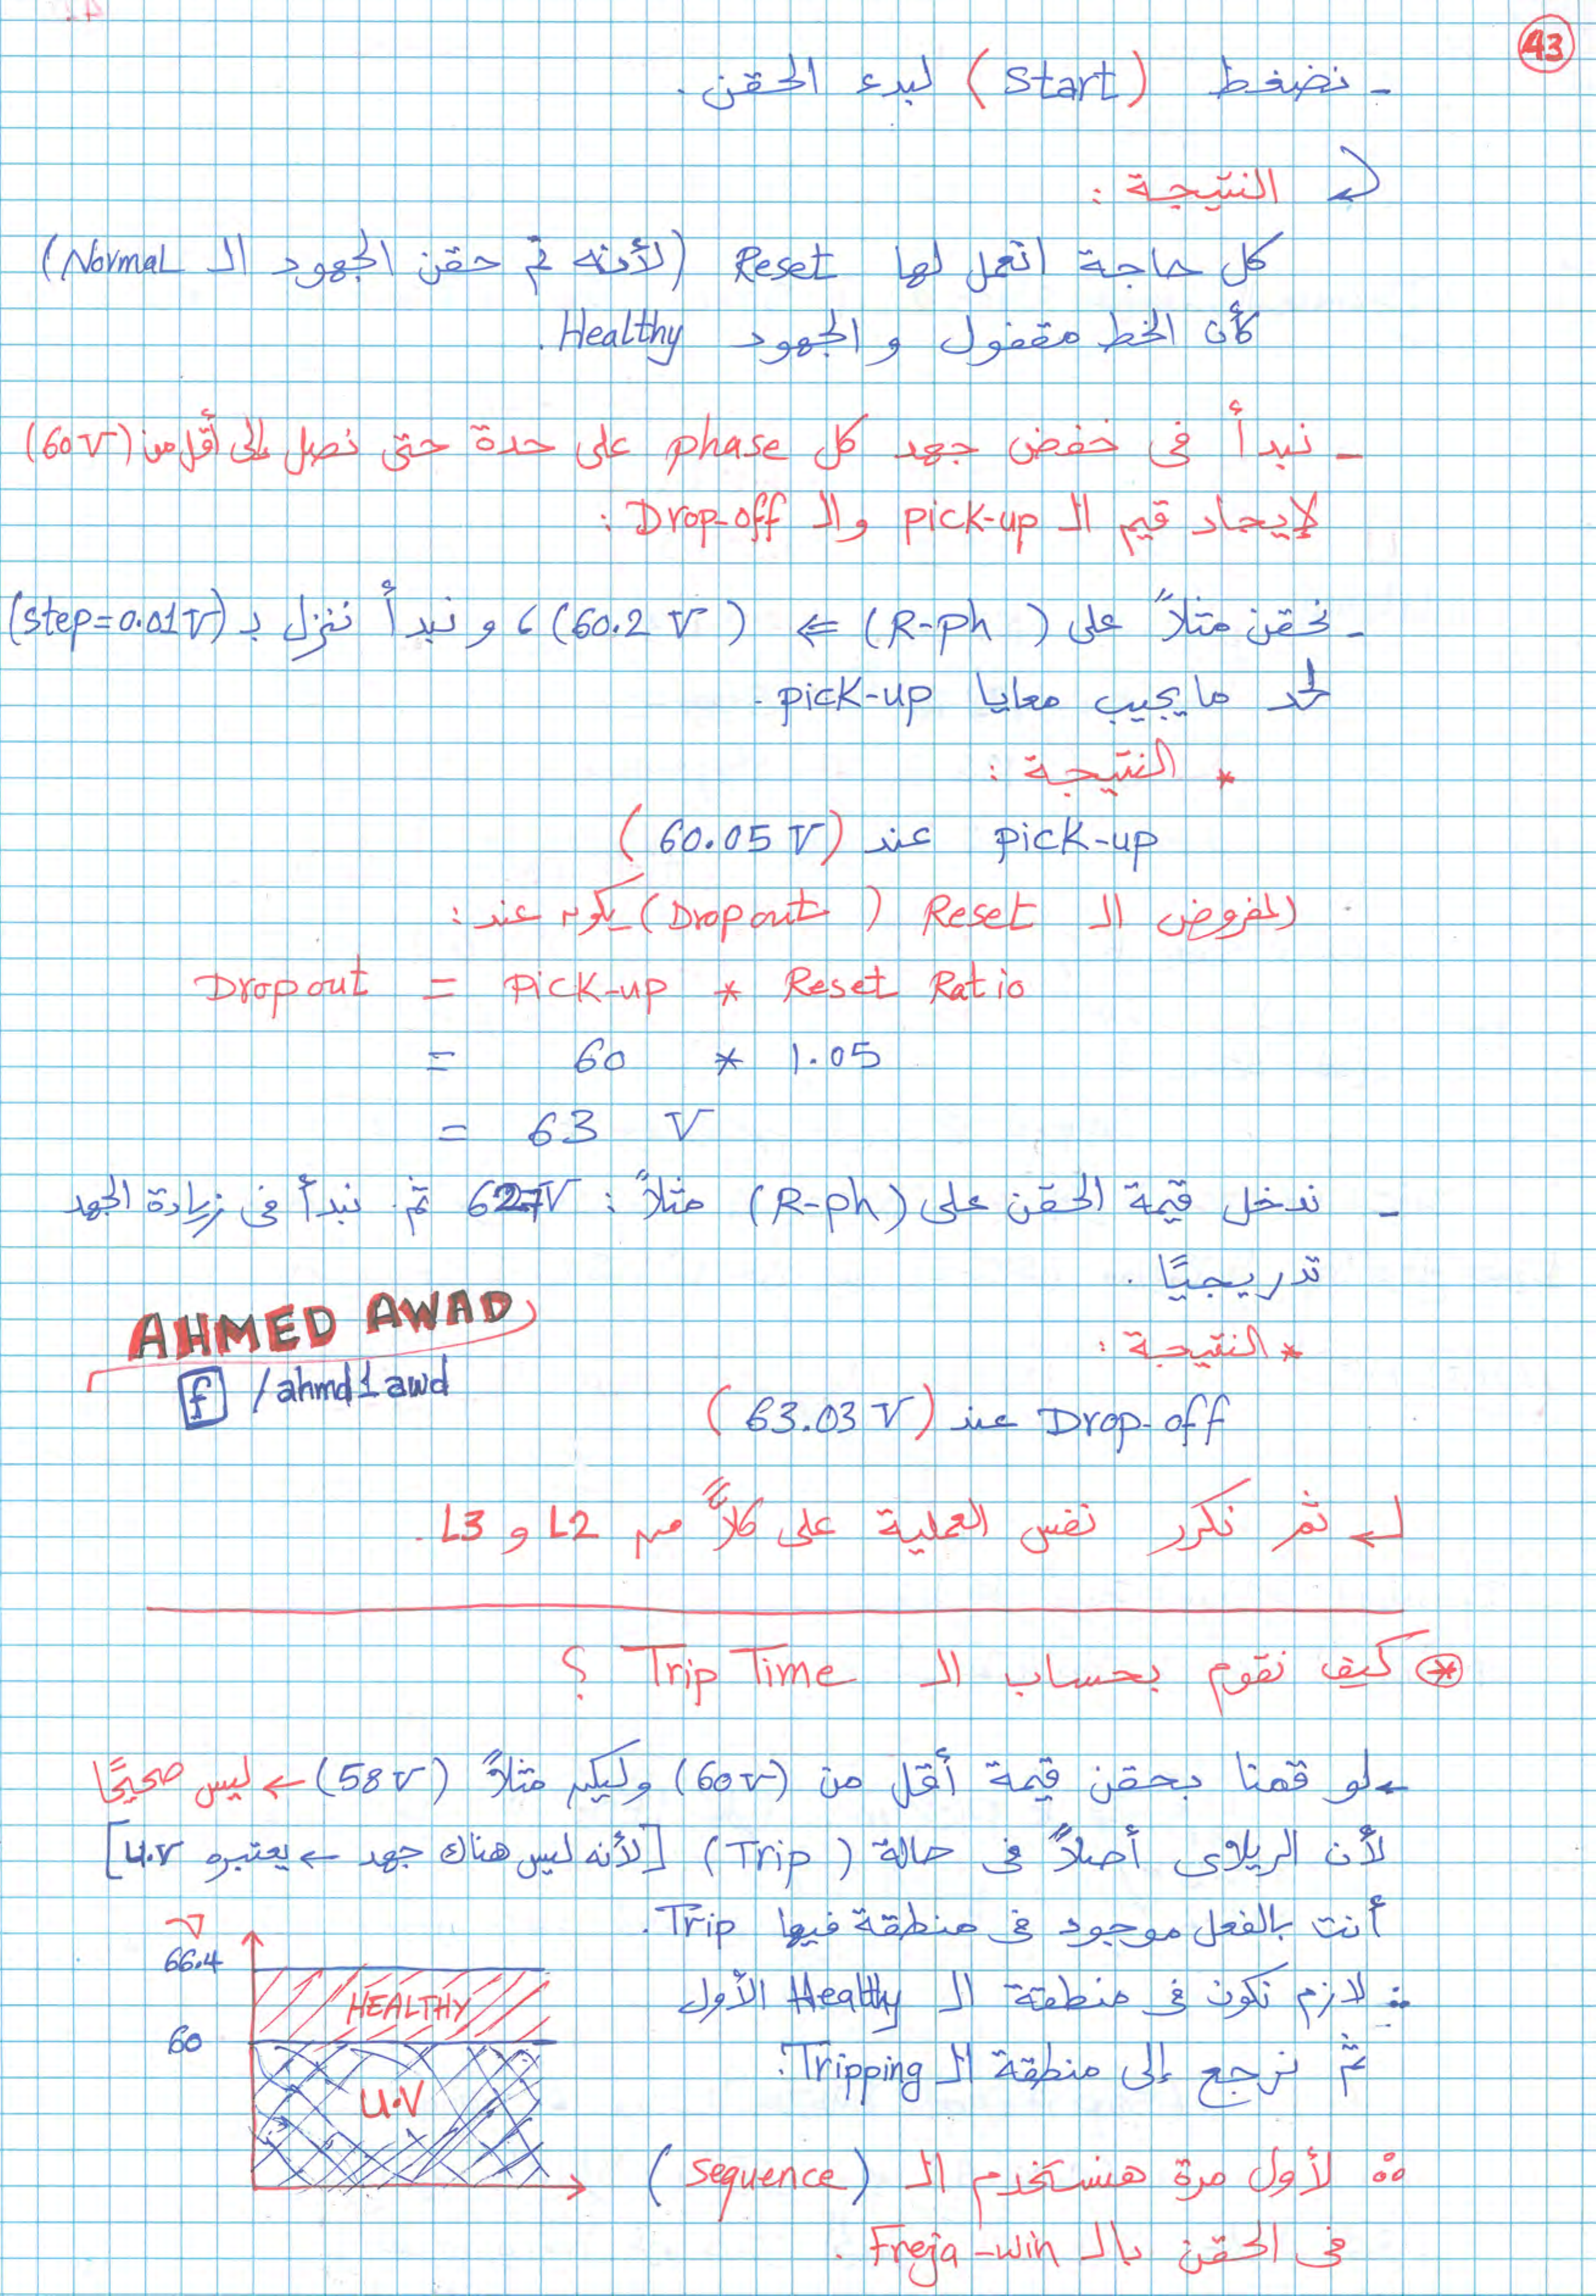 43
- نضغط (Start) لبدء الحقن.
النتيجة :
كل حاجة اتعمل لها Reset (لأنه تم حقن الجهود الـ Normal)
كأن الخط مقفول و الجهود Healthy.
- نبدأ في خفض جهد كل phase على حدة حتى نصل إلى أقل من (60V)
لإيجاد قيم الـ pick-up والـ Drop-off :
- نحقن مثلاً على (R-ph) ⇐ (60.2 V)، و نبدأ ننزل بـ (step=0.01V)
لحد ما يجيب معايا pick-up.
* النتيجة :
pick-up عند (60.05 V)
المفروض الـ Reset (Dropout) يكون عند :
Dropout = Pick-up * Reset Ratio
= 60 * 1.05
= 63 V
- ندخل قيمة الحقن على (R-ph) مثلاً : 62.7V ثم نبدأ في زيادة الجهد
تدريجيًا.
AHMED AWAD
f /ahmd1awd
* النتيجة :
Drop-off عند (63.03 V)
ثم نكرر نفس العملية على كلاً من L2 و L3.
* كيف نقوم بحساب الـ Trip Time ؟
لو قمنا بحقن قيمة أقل من (60V) وليكن مثلاً (58V) ← ليس صحيحًا
لأن الريلاى أصلاً في حالة (Trip) [لأنه ليس هناك جهد ← يعتبره U.V]
أنت بالفعل موجود في منطقة فيها Trip.
∴ لازم نكون في منطقة الـ Healthy الأول
ثم نرجع إلى منطقة الـ Tripping.
V
66.4
HEALTHY
60
U.V
∴ لأول مرة هنستخدم الـ (sequence)
في الحقن بالـ Freja-win.